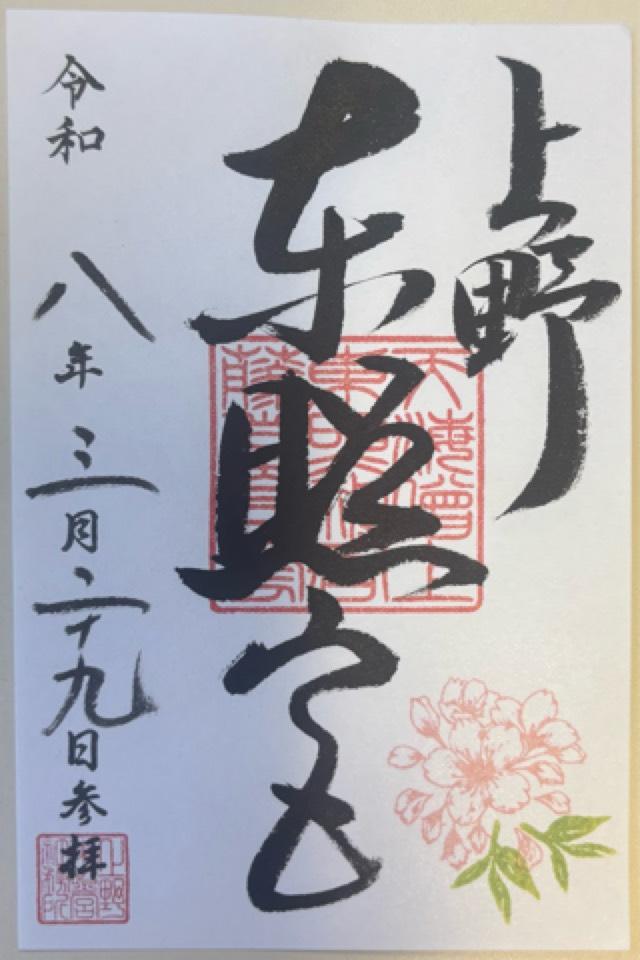 上野
東照宮
令和八年三月二十九日参拝